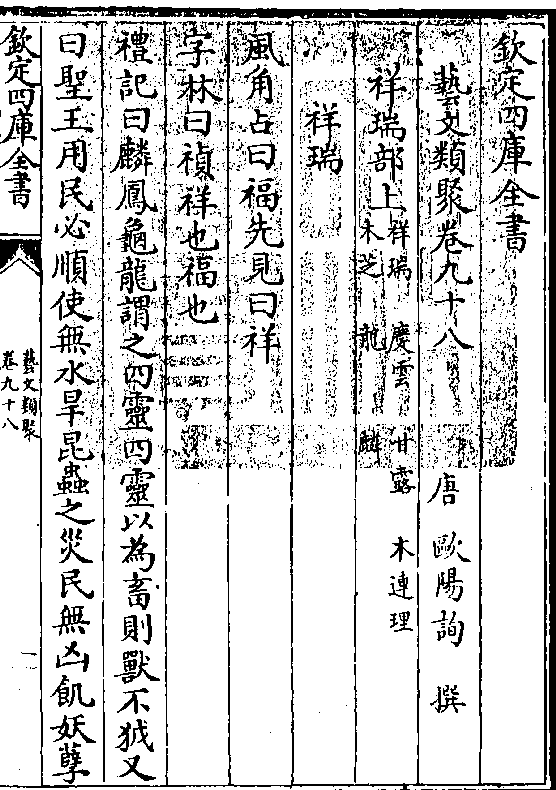 欽定四庫全書
藝文類聚卷九十八
唐 歐陽詢 撰
祥瑞部上 祥瑞 慶雲 甘露 木連理
木芝 龍 麟
祥瑞
風角占曰福先見曰祥
字林曰禎祥也福也
禮記曰麟鳳龜龍謂之四靈四靈以為畜則獸不狘又
曰聖王用民必順使無水旱昆蟲之災民無凶飢妖孽
欽定四庫全書
藝文類聚
卷九十八
一